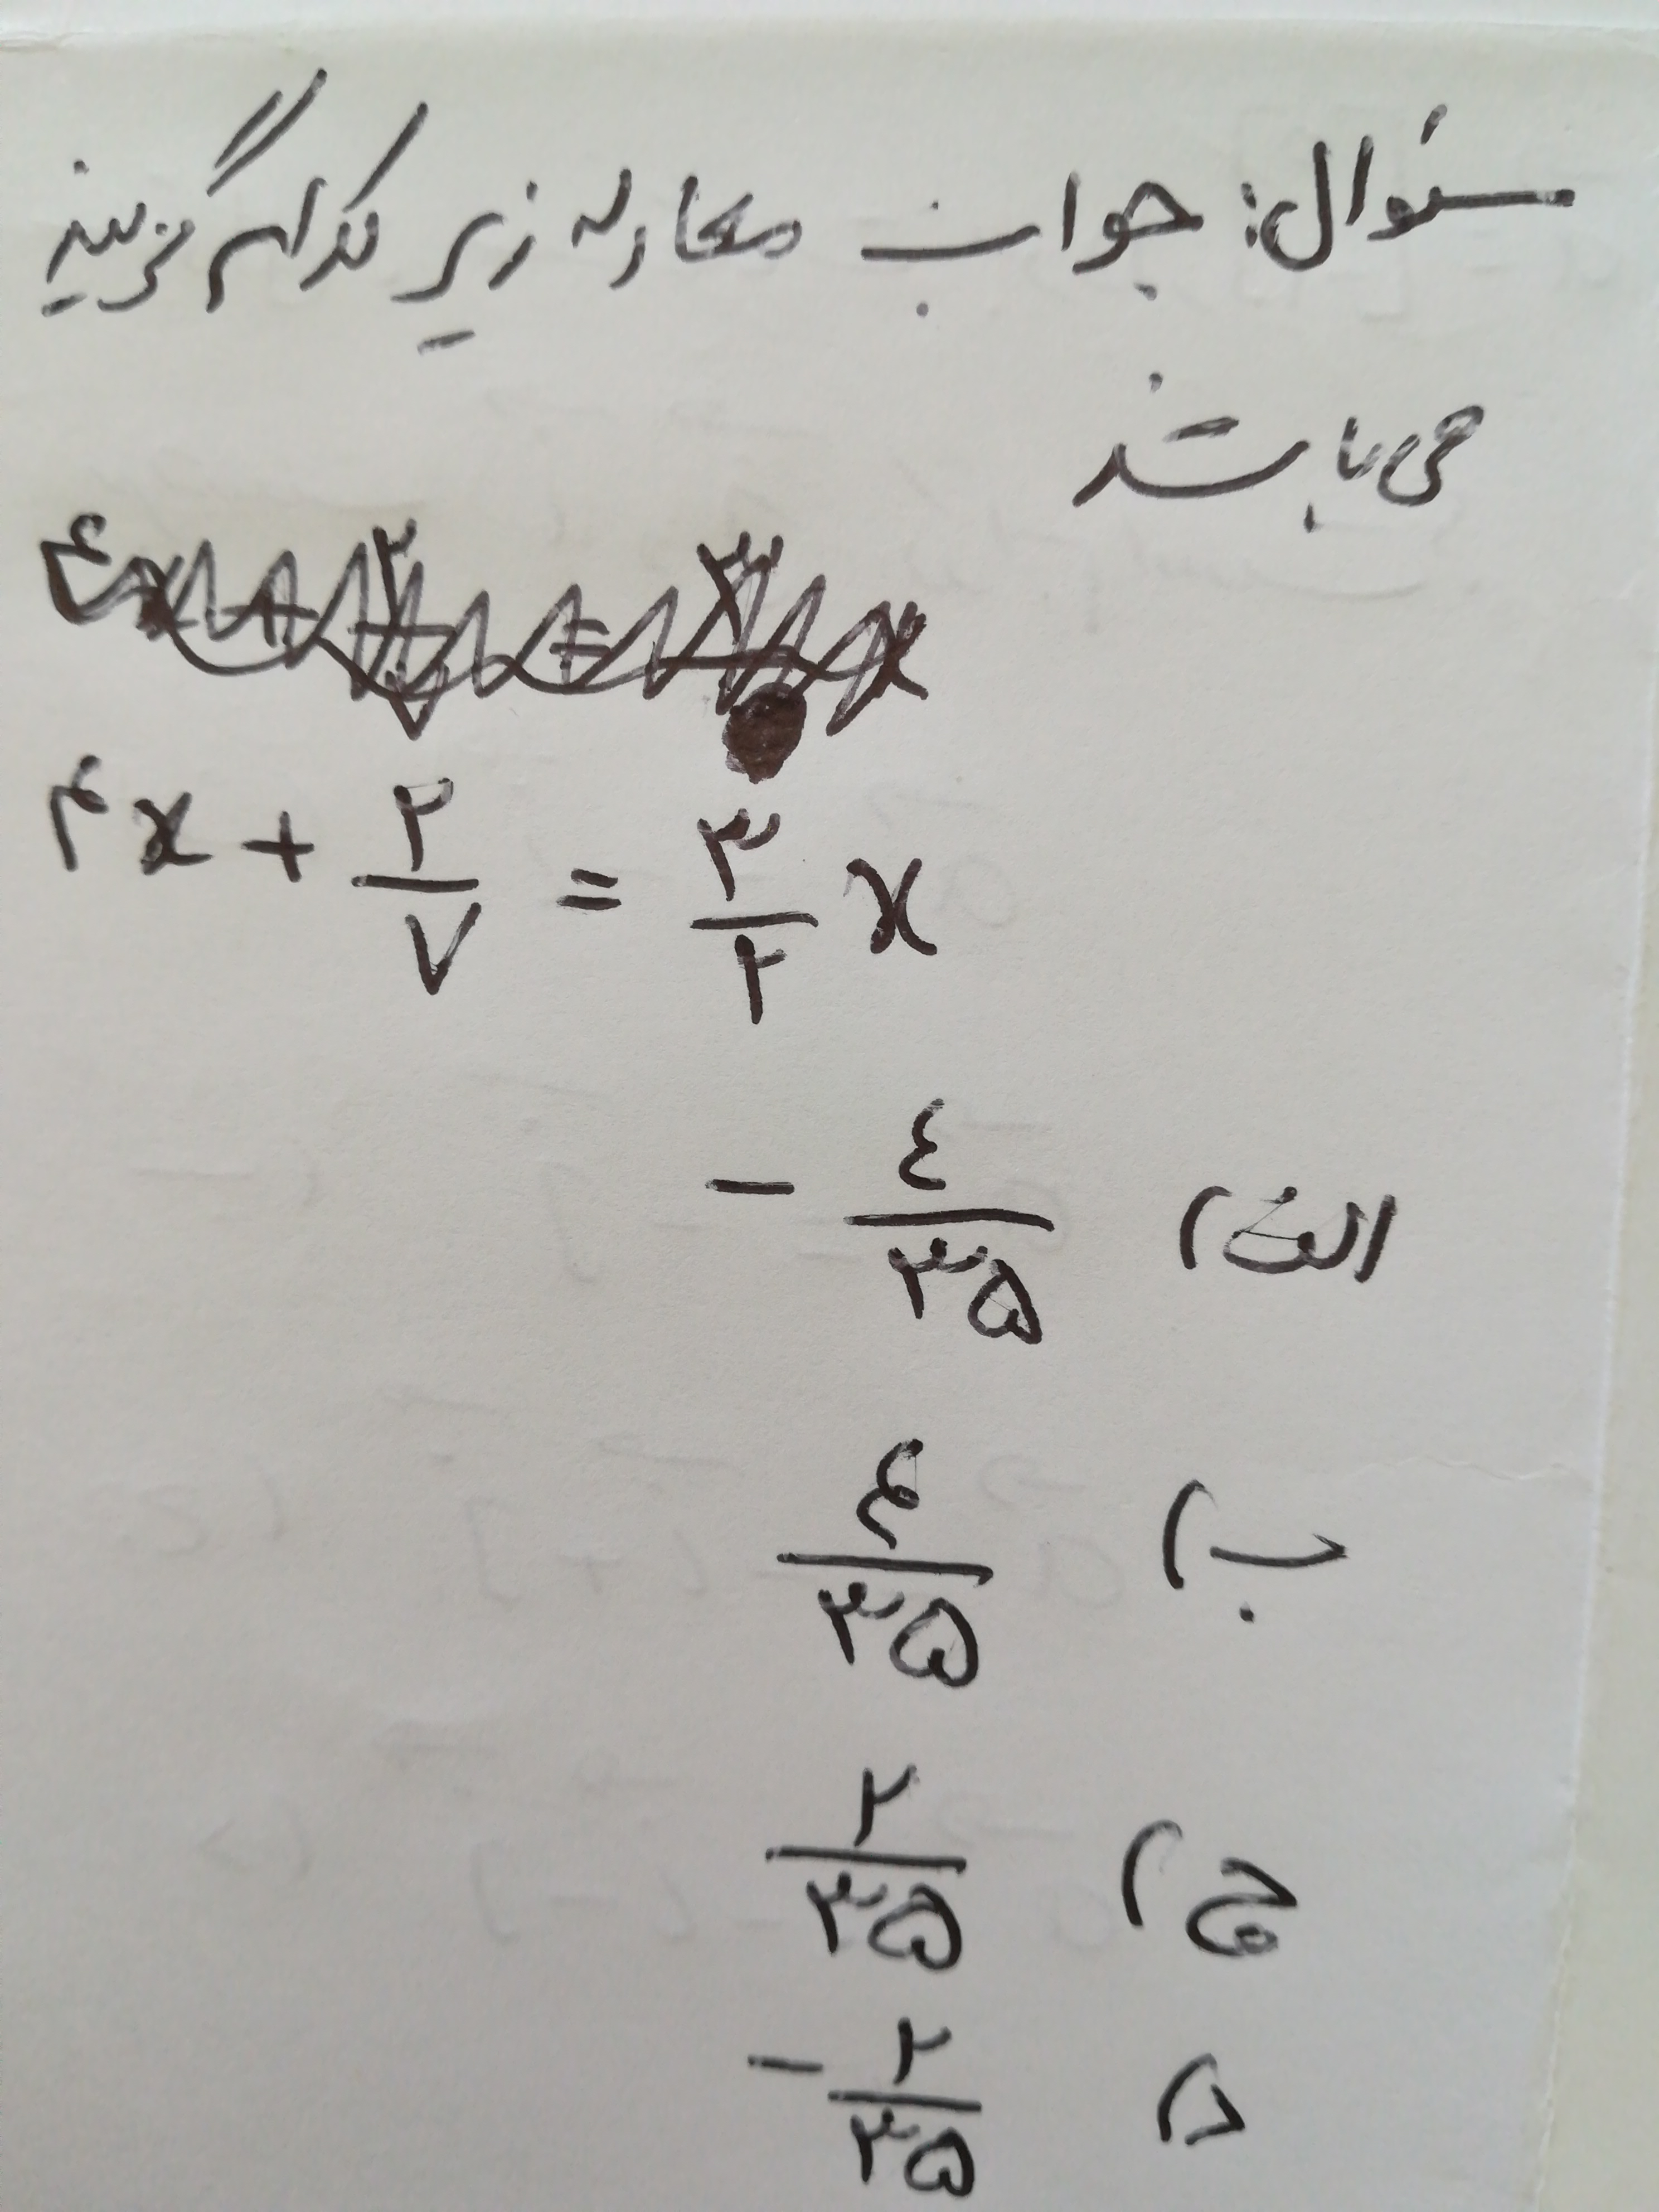 سئوال: جواب معادله زیر کدام گزینه
می باشد
۴x + ۲/۷ = ۳/۲ x
الف) - ۴/۳۵
ب) ۴/۳۵
ج) ۲/۳۵
د) - ۲/۳۵